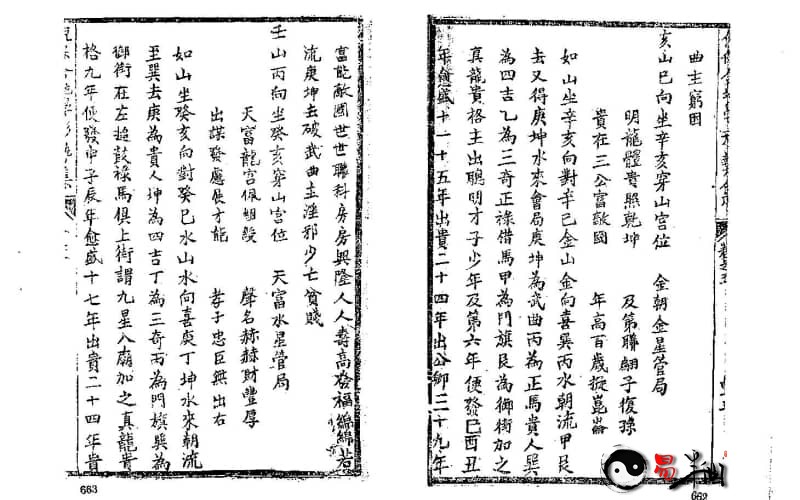 曲主窮困
亥山巳向坐辛亥穿山宮位　金朝金星管局
明龍體貴照乾坤　及第聯翩子復孫
貴在三公富敵國　年高百歲
如山坐辛亥向對辛巳金山金向喜巽丙水朝流甲艮
去又得庚坤水來會局庚坤為武曲丙為正馬貴人巽
為四吉乙為三奇正祿借馬甲為門旗艮為御街加之
真龍貴格主出聰明才子少年及第六年便發巳酉丑
年愈盛十一十五年出貴二十四年出公卿三十九年
662
富能敵國世世聯科房房興隆人人壽高發福綿綿若
流庚坤去破武曲主淫邪少亡貧賤
壬山丙向坐癸亥穿山宮位　天富水星管局
天富龍宮佩組綬　聲名赫赫財豐厚
出謀發慮展才能　孝子忠臣無出右
如山坐癸亥向對癸巳水山水向喜庚丁坤水來朝流
至巽去庚為貴人坤為四吉丁為三奇丙為門旗巽為
御街在左趨鼓祿馬俱上街謂九星八廟加之真龍貴
格九年便發申子辰年愈盛十七年出貴二十四年貴
663
易